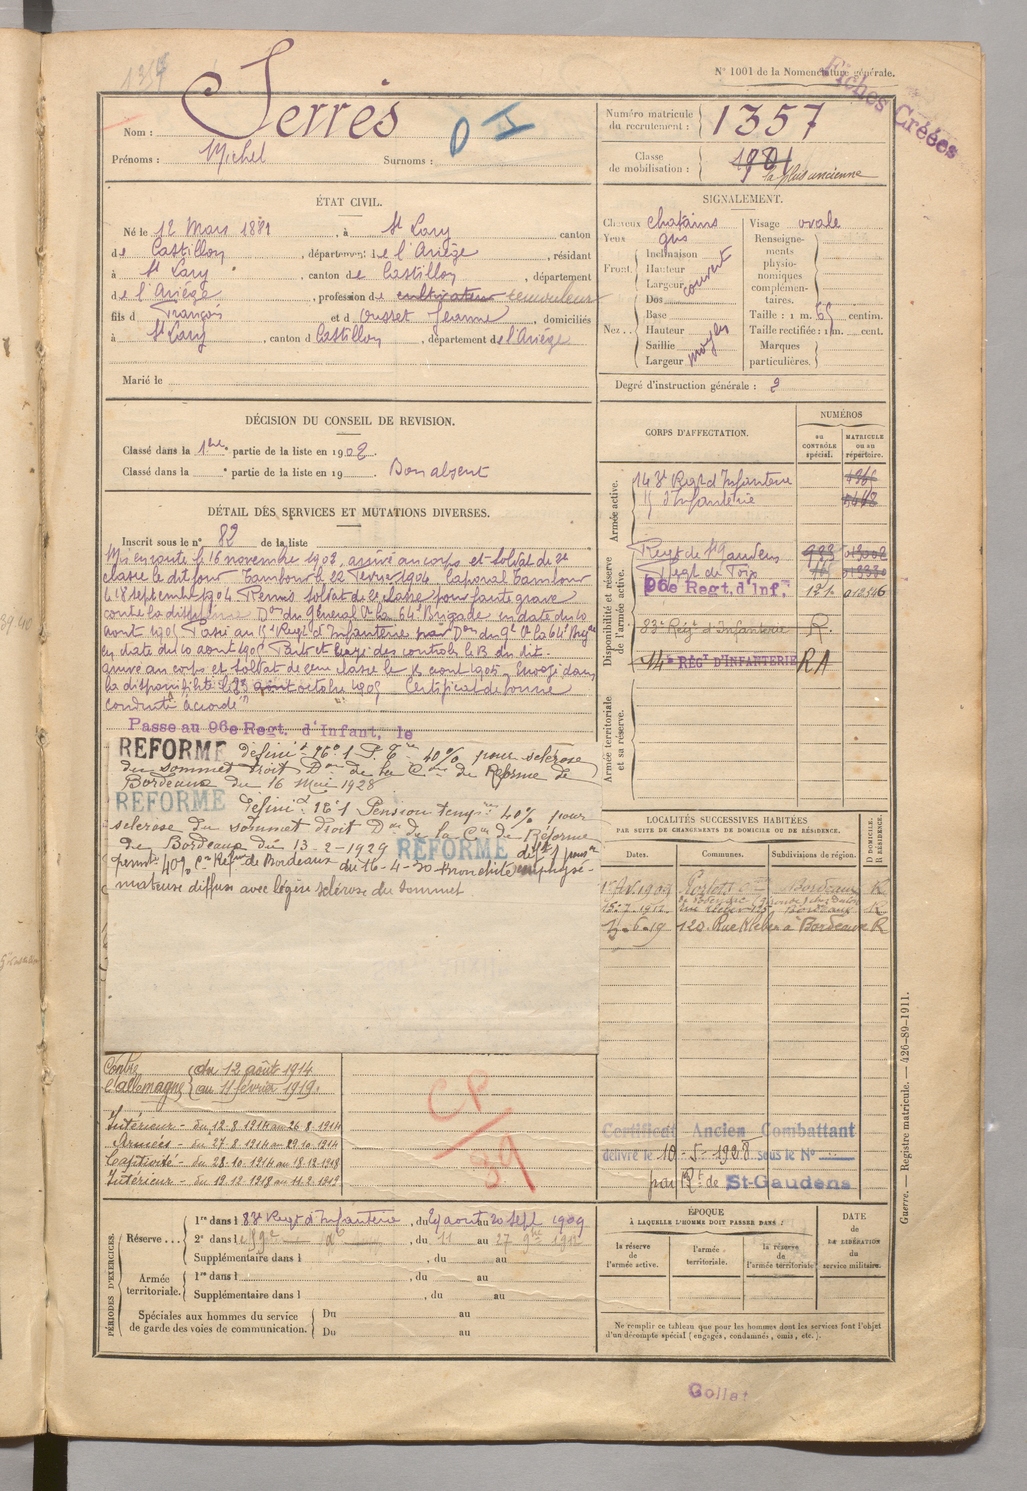 N° 1001 de la Nomenclature générale.
Fiches Créées
Nom : Serrès
Prénoms : Michel Surnoms :
Numéro matricule du recrutement : 1357
Classe de mobilisation :
la plus ancienne
ÉTAT CIVIL.
Né le 12 Mars 1881, à St Lary canton
de Castillon, département de l'Ariège, résidant
à St Lary, canton de Castillon, département
de l'Ariège, profession de cultivateur
fils de François et d Ousset Jeanne, domiciliés
à St Lary, canton d Castillon, département de l'Ariège
Marié le
SIGNALEMENT.
Cheveux chatains
Yeux gris
Front. Inclinaison
Hauteur
Largeur couvert
Nez... Dos
Base
Hauteur
Saillie
Largeur moyen
Visage ovale
Renseignements physionomiques complémentaires.
Taille : 1 m. 65 centim.
Taille rectifiée : 1 m. cent.
Marques particulières.
Degré d'instruction générale : 2
DÉCISION DU CONSEIL DE REVISION.
Classé dans la 1ère partie de la liste en 1902.
Classé dans la e partie de la liste en 19 Bon absent
DÉTAIL DES SERVICES ET MUTATIONS DIVERSES.
Inscrit sous le n° 82 de la liste
Mis en route le 16 novembre 1902, arrivé au corps et soldat de 2e
classe le dit jour. Tambour le 22 février 1904. Caporal Tambour
le 18 septembre 1904. Remis soldat de 2e classe pour faute grave
contre la discipline Don du Général Ct la 64e Brigade en date du 10
aout 1905 Passé au 15e Regt d'Infanterie par Don du Gl Ct la 64e Brigde
en date du 10 aout 1905 Parti et rayé des controles le 13 du dit.
arrivé au corps et soldat de 2eme classe le aout 1905 Envoyé dans
la disponibilité le 23 octobre 1905 Certificat de bonne
conduite "Accordé"
Passe au 96e Regt. d'Infant. le
REFORMÉ définit n° 1 P. Tre 40% pour sclerose
du sommet droit Don de la Con de Réforme de
Bordeaux du 16 Mai 1928
REFORMÉ définit n° 1 Pension tempre 40% pour
sclerose du sommet droit Don de la Con de Réforme
de Bordeaux du 13-2-1929 REFORMÉ déft 1 pension
permte 40% Cn Réfme de Bordeaux du 16-4-30 Bronchite emphysé-
mateuse diffuse avec légère sclérose du sommet.
CORPS D'AFFECTATION.
NUMÉROS
au CONTRÔLE spécial.
MATRICULE ou au répertoire.
Armée active.
143e Regt d'Infanterie
15 d'Infanterie
Disponibilité et réserve de l'armée active.
Regt de St Gaudens
Regt de Foix
96e Regt. d'Inf.
83e Régt d'Infanterie R.
14e RÉGt D'INFANTERIE RA
Armée territoriale et sa réserve.
LOCALITÉS SUCCESSIVES HABITÉES
PAR SUITE DE CHANGEMENTS DE DOMICILE OU DE RÉSIDENCE.
Dates. Communes. Subdivisions de région. D DOMICILE. R RÉSIDENCE.
Bordeaux R
Bordeaux R
6-19 120 Rue Kléber à Bordeaux R
Contre l'allemagne du 12 août 1914
au 11 février 1919.
Intérieur - du 12-8-1914 au 26-8-1914
Armées - du 27-8-1914 au 29-10-1914
Captivité - du 28-10-1914 au 18-12-1918
Intérieur - du 19-12-1918 au 11-2-1919
CP
39
Certificat Ancien Combattant
délivré le 10-5-1928 sous le N°
par Rt de St-Gaudens
PÉRIODES D'EXERCICES.
Réserve... 1re dans l 83e Regt d'Infanterie, du 29 aout au 20 Sept 1909
2e dans l, du 11 au 27 9bre 1912
Supplémentaire dans l, du au
Armée territoriale. 1re dans l, du au
Supplémentaire dans l, du au
Spéciales aux hommes du service de garde des voies de communication. Du au
Du au
ÉPOQUE
À LAQUELLE L'HOMME DOIT PASSER DANS :
la réserve de l'armée active.
l'armée territoriale.
la réserve de l'armée territoriale
DATE DE LA LIBÉRATION du service militaire.
Ne remplir ce tableau que pour les hommes dont les services font l'objet
d'un décompte spécial (engagés, condamnés, omis, etc.).
Guerre. — Registre matricule. — 426-89-1911.
Gollat